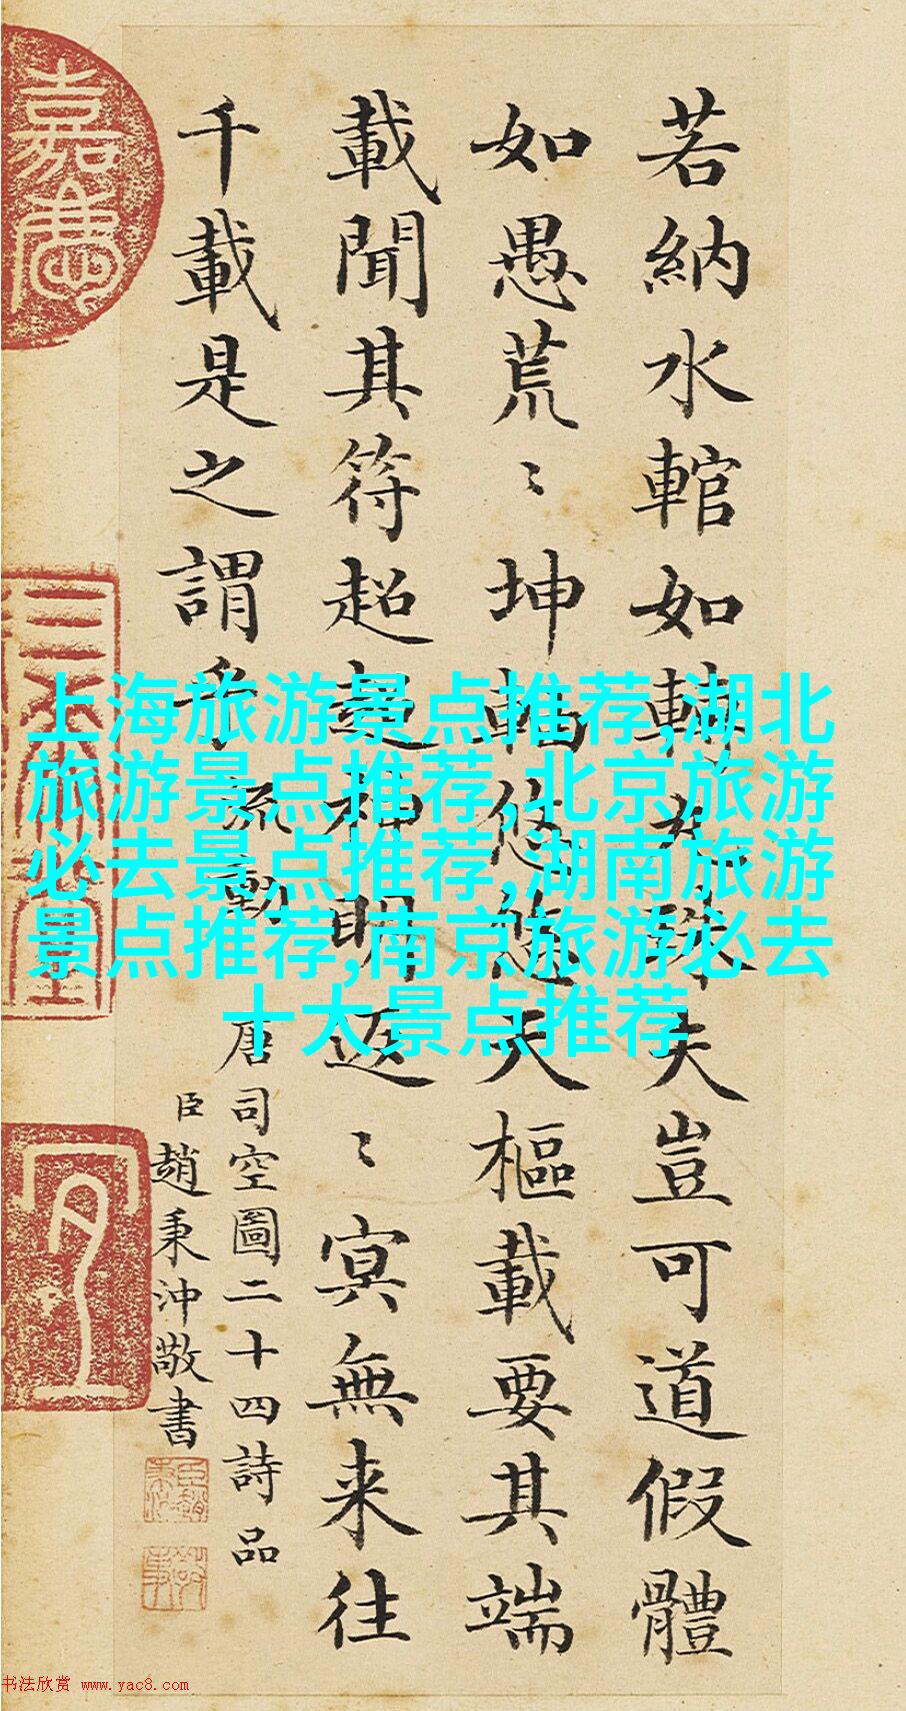 若納水輨如轉丸珠夫豈可道假體
如愚荒〻坤軸悠悠天樞載要其端
載聞其符超超神明返〻冥無来往
千載是之謂乎 流動
唐司空圖二十四詩品
臣趙秉沖敬書
嘉慶
上海旅游景点推荐,湖北
旅游景点推荐,北京旅游
必去景点推荐,湖南旅游
景点推荐,南京旅游必去
十大景点推荐
书法欣赏 www.yac8.com